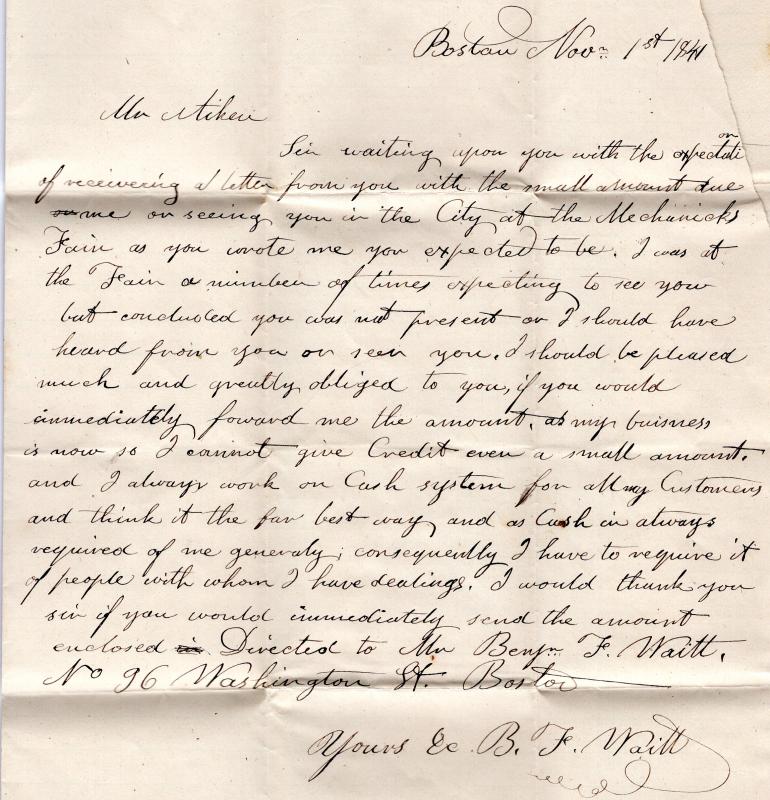 Boston Novm 1st 1841
Mr Aiken
Sir waiting upon you with the expectation
of receivering a letter from you with the small amount due
me or seeing you in the City at the Mechanicks
Fair as you wrote me you expected to be. I was at
the Fair a number of times expecting to see you
but concluded you was not present or I should have
heard from you or seen you. I should be pleased
much and greatly obliged to you, if you would
immediately foward me the amount. as my buisness
is now so I cannot give Credit even a small amount.
and I always work on Cash system for all my Customers
and think it the far best way, and as Cash is always
required of me generaly; consequently I have to require it
of people with whom I have dealings. I would thank you
sir if you would immediately send the amount
enclosed Directed to Mr Benjn F. Waitt.
No 96 Washington St. Boston
Yours &c B. F. Waitt